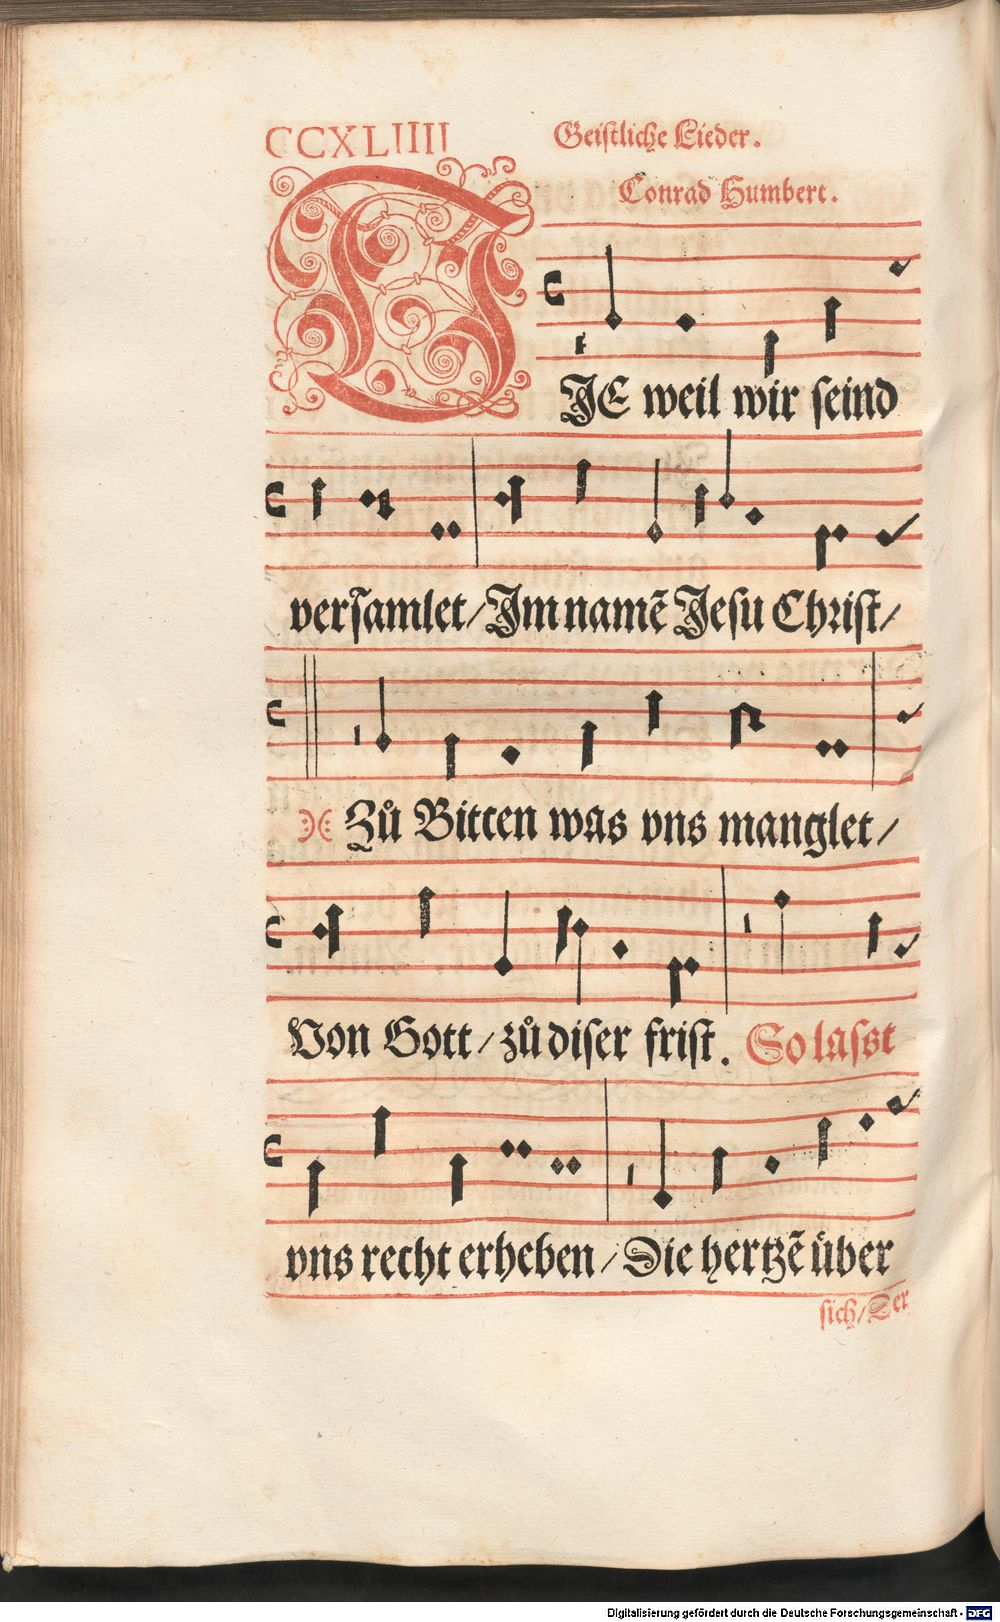 CCXLIIII
Geistliche Lieder.
Conrad Humbert.
DIE weil wir seind
versãmlet/ Im namẽ Jesu Christ/
Zů Bitten was vns manglet/
Von Gott/ zů diser frist. So lasst
vns recht erheben/ Die hertzẽ über
sich/ Der
Digitalisierung gefördert durch die Deutsche Forschungsgemeinschaft - DFG